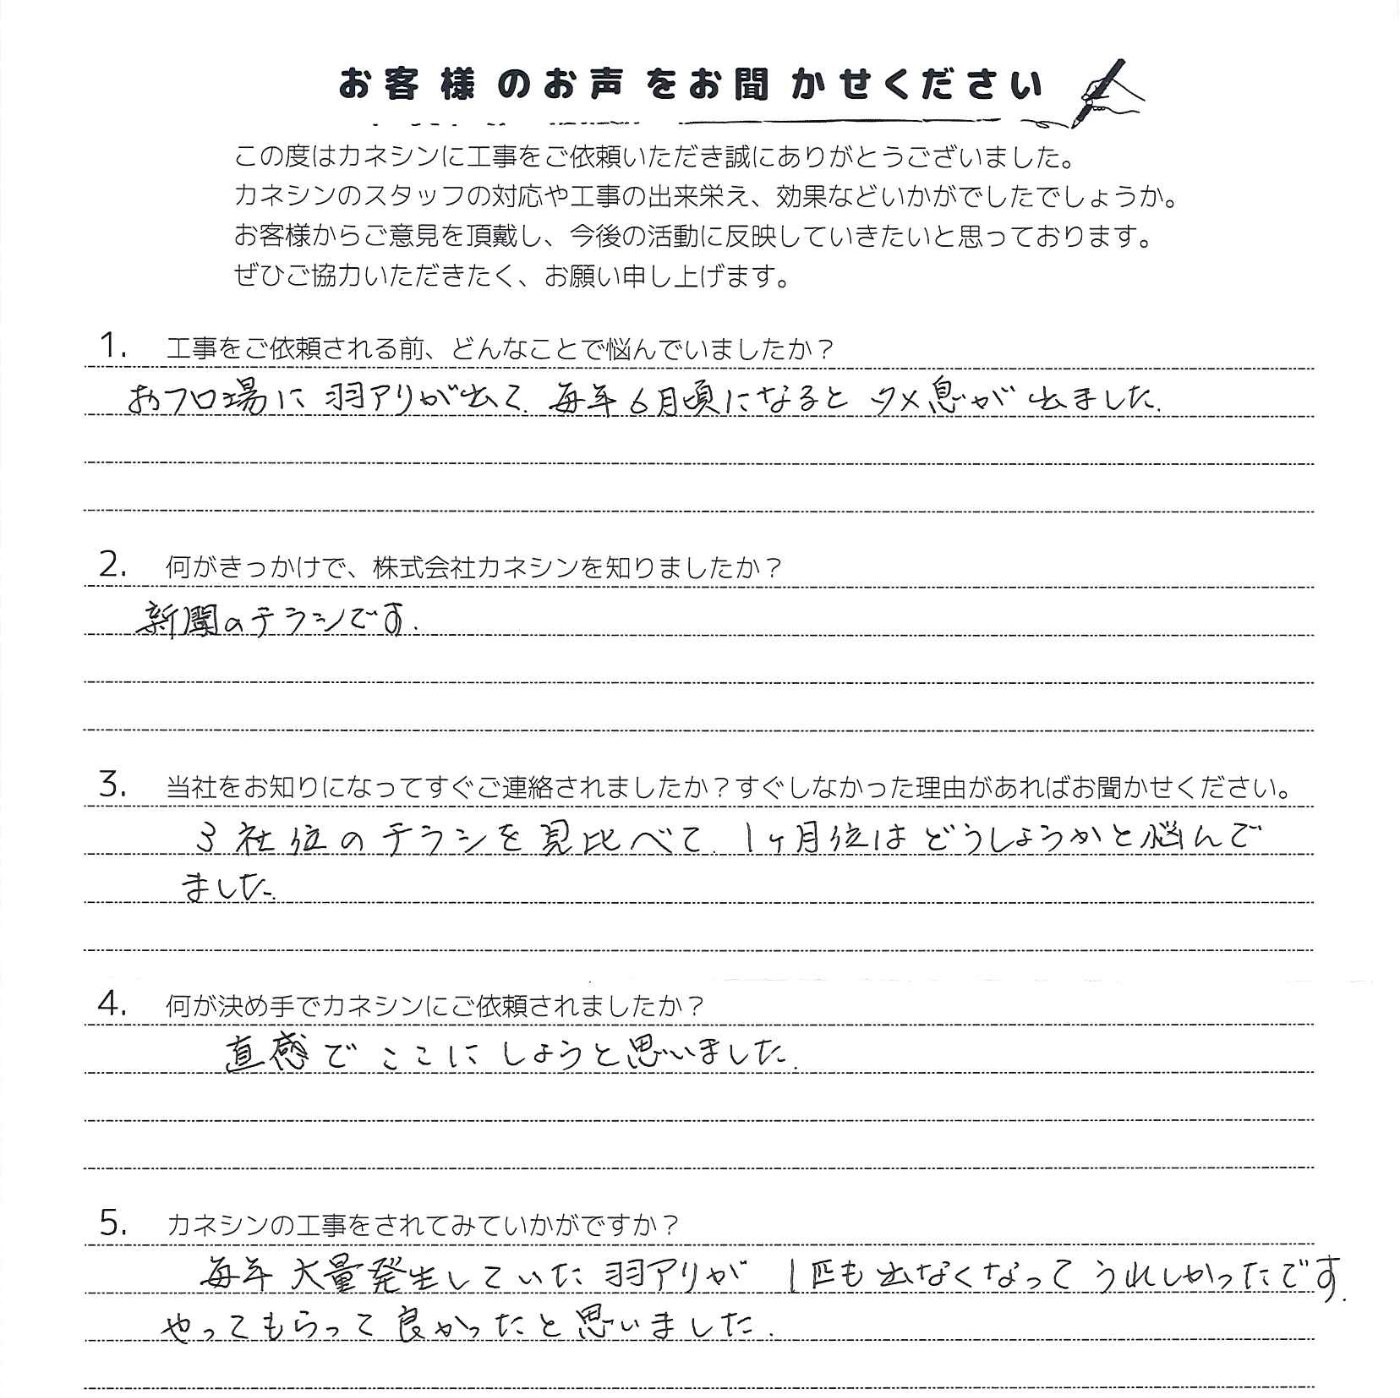 お客様のお声をお聞かせください
この度はカネシンに工事をご依頼いただき誠にありがとうございました。
カネシンのスタッフの対応や工事の出来栄え、効果などいかがでしたでしょうか。
お客様からご意見を頂戴し、今後の活動に反映していきたいと思っております。
ぜひご協力いただきたく、お願い申し上げます。
1. 工事をご依頼される前、どんなことで悩んでいましたか？
おフロ場に羽アリが出て、毎年6月頃になるとタメ息が出ました。
2. 何がきっかけで、株式会社カネシンを知りましたか？
新聞のチラシです。
3. 当社をお知りになってすぐご連絡されましたか？すぐしなかった理由があればお聞かせください。
3社位のチラシを見比べて、1ヶ月位はどうしようかと悩んで
ました。
4. 何が決め手でカネシンにご依頼されましたか？
直感でここにしようと思いました。
5. カネシンの工事をされてみていかがですか？
毎年大量発生していた羽アリが1匹も出なくなってうれしかったです。
やってもらって良かったと思いました。